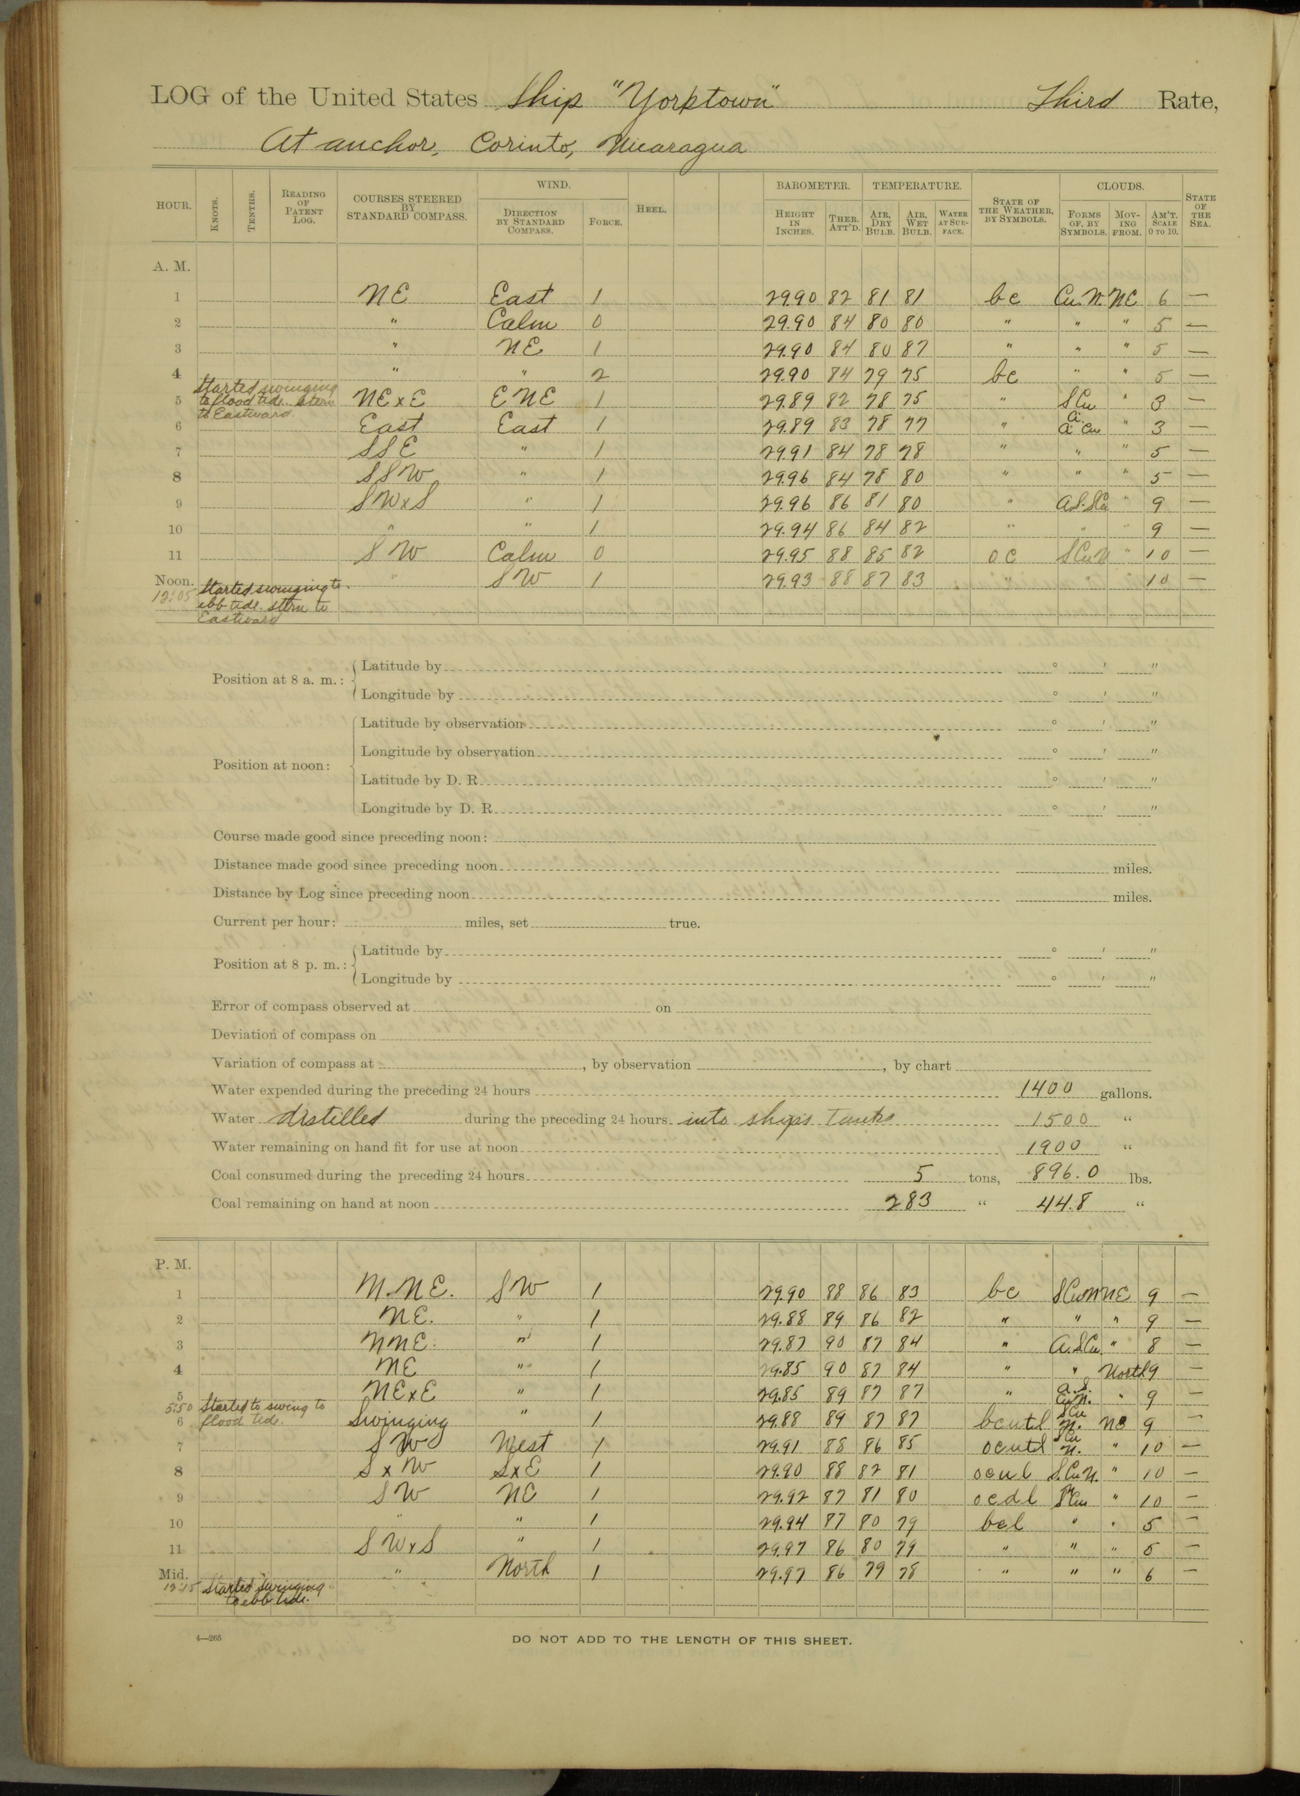 LOG of the United States Ship "Yorktown" Third Rate,
At anchor, Corinto, Nicaragua
HOUR. KNOTS. TENTHS. READING OF PATENT LOG. COURSES STEERED BY STANDARD COMPASS. WIND. DIRECTION BY STANDARD COMPASS. FORCE. HEEL. BAROMETER. HEIGHT IN INCHES. THER. ATT'D. TEMPERATURE. AIR, DRY BULB. AIR, WET BULB. WATER AT SURFACE. STATE OF THE WEATHER, BY SYMBOLS. CLOUDS. FORMS OF, BY SYMBOLS. MOVING FROM. AM'T. SCALE 0 TO 10. STATE OF THE SEA.
A. M.
1 NE East 1 29.90 82 81 81 bc Cu.N. NE 6 —
2 " Calm 0 29.90 84 80 80 " " " 5 —
3 " NE 1 29.90 84 80 87 " " " 5 —
4 " " 2 29.90 84 79 75 bc " " 5 —
Started swinging
to flood tide. stern
to Eastward
5 NExE ENE 1 29.89 82 78 75 " S Cu " 3 —
6 East East 1 29.89 83 78 77 " " 3 —
7 SSE " 1 29.91 84 78 78 " " " 5 —
8 SSW " 1 29.96 84 78 80 " " " 5 —
9 SWxS " 1 29.96 86 81 80 " " 9 —
10 " " 1 29.94 86 84 82 " " " 9 —
11 SW Calm 0 29.95 88 85 82 oc S Cu N " 10 —
Noon. " SW 1 29.93 88 87 83 " 10 —
12:05 Started swinging to
ebb tide. stern to
Eastward
Position at 8 a. m.: Latitude by ° ' "
Longitude by ° ' "
Position at noon: Latitude by observation ° ' "
Longitude by observation ° ' "
Latitude by D. R. ° ' "
Longitude by D. R. ° ' "
Course made good since preceding noon:
Distance made good since preceding noon miles.
Distance by Log since preceding noon miles.
Current per hour: miles, set true.
Position at 8 p. m.: Latitude by ° ' "
Longitude by ° ' "
Error of compass observed at on
Deviation of compass on
Variation of compass at , by observation , by chart
Water expended during the preceding 24 hours 1400 gallons.
Water distilled during the preceding 24 hours into ship's tanks 1500 "
Water remaining on hand fit for use at noon 1900 "
Coal consumed during the preceding 24 hours 5 tons, 896.0 lbs.
Coal remaining on hand at noon 283 " 44.8 "
P. M.
1 NNE. SW 1 29.90 88 86 83 bc S Cu N NE 9 —
2 NE. " 1 29.88 89 86 82 " " " 9 —
3 NNE. " 1 29.87 90 87 84 " A.S.Cu. " 8 —
4 NE " 1 29.85 90 87 84 " " North 9 —
5 NExE " 1 29.85 89 87 87 " " 9 —
5:50 Started to swing to
flood tide.
6 Swinging " 1 29.88 89 87 87 bcutl S Cu N. NE 9 —
7 SW West 1 29.91 88 86 85 ocutl S Cu N. " 10 —
8 SxW SxE 1 29.90 88 82 81 ocul S.Cu N. " 10 —
9 SW NE 1 29.92 87 81 80 ocdl " 10 —
10 " " 1 29.94 87 80 79 bcl " " 5 —
11 SWxS " 1 29.97 86 80 79 " " " 5 —
Mid. " North 1 29.97 86 79 78 " " " 6 —
12:15 Started swinging
to ebb tide.
4—265
DO NOT ADD TO THE LENGTH OF THIS SHEET.